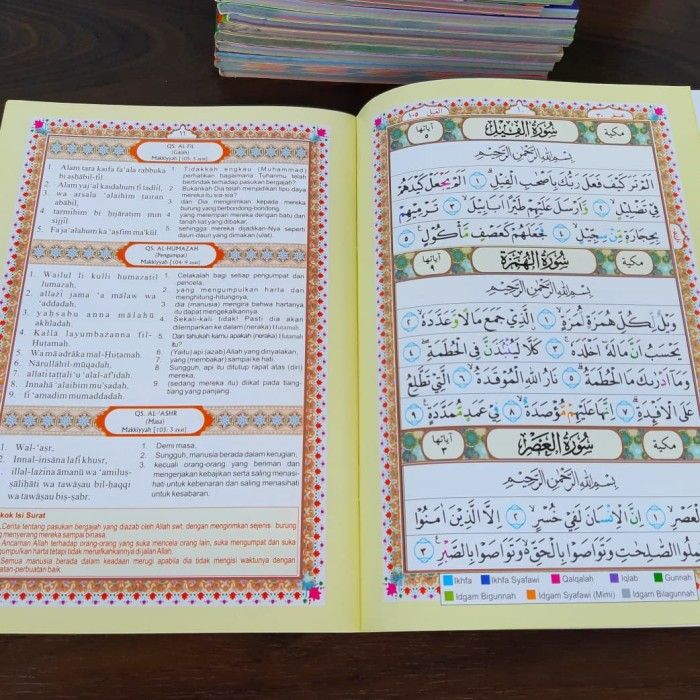 ١١
QS. AL-FIL
(Gajah)
Makkiyyah [105: 5 ayat]
1. Alam tara kaifa fa'ala rabbuka
bi aṣḥābil-fīl.
2. Alam yaj'al kaidahum fī taḍlīl,
3. wa arsala 'alaihim ṭairan
abābīl.
4. tarmīhim bi ḥijāratim min
sijjīl
5. Faja'alahum ka'aṣfim ma'kūl.
1. Tidakkah engkau (Muhammad)
perhatikan bagaimana Tuhanmu telah
bertindak terhadap pasukan bergajah?
2. Bukankah Dia telah menjadikan tipu daya
mereka itu sia-sia?
3. dan Dia mengirimkan kepada mereka
burung yang berbondong-bondong,
4. yang melempari mereka dengan batu dari
tanah liat yang dibakar,
5. sehingga mereka dijadikan-Nya seperti
daun-daun yang dimakan (ulat).
QS. AL-HUMAZAH
(Pengumpat)
Makkiyyah [104: 9 ayat]
1. Wailul li kulli humazatil
lumazah,
2. allażī jama 'a mālaw wa
'addadah,
3. yaḥsabu anna mālahū
akhladah,
4. Kallā layumbazanna fil-
Ḥuṭamah.
5. Wa mā adrāka mal-Ḥuṭamah.
6. Nārullāhil-mūqadah,
7. allatī taṭṭali'u 'alal-af'idah.
8. Innahā 'alaihim mu'ṣadah,
9. fī 'amadim mumaddadah.
1. Celakalah bagi setiap pengumpat dan
pencela,
2. yang mengumpulkan harta dan
menghitung-hitungnya,
3. dia (manusia) mengira bahwa hartanya
itu dapat mengekalkannya.
4. Sekali-kali tidak! Pasti dia akan
dilemparkan ke dalam (neraka) Hutamah.
5. Dan tahukah kamu apakah (neraka) Hutamah
itu?
6. (Yaitu) api (azab) Allah yang dinyalakan,
7. yang (membakar) sampai ke hati.
8. Sungguh, api itu ditutup rapat atas (diri)
mereka,
9. (sedang mereka itu) diikat pada tiang-
tiang yang panjang.
QS. AL-'ASHR
(Masa)
Makkiyyah [103: 3 ayat]
1. Wal-'aṣr,
2. Innal-insāna lafī khusr,
3. illal-lażīna āmanū wa 'amiluṣ-
ṣāliḥāti wa tawāṣau bil-ḥaqqi
wa tawāṣau biṣ-ṣabr.
1. Demi masa,
2. Sungguh, manusia berada dalam kerugian,
3. kecuali orang-orang yang beriman dan
mengerjakan kebajikan serta saling menasi-
hati untuk kebenaran dan saling menasihati
untuk kesabaran.
kok Isi Surat
Cerita tentang pasukan bergajah yang diazab oleh Allah swt. dengan mengirimkan sejenis burung
menyerang mereka sampai binasa
Ancaman Allah terhadap orang-orang yang suka mencela orang lain, suka mengumpat dan suka
gumpulkan harta tetapi tidak menafkahkannya di jalan Allah.
Semua manusia berada dalam keadaan merugi apabila dia tidak mengisi waktunya dengan
atan-perbuatan baik.
الفيل ١٠٥
عم ٣٠
مكية
سُورَةُ الْفِيْلِ
آياتها ٥
بِسْمِ اللّٰهِ الرَّحْمٰنِ الرَّحِيْمِ
اَلَمْ تَرَ كَيْفَ فَعَلَ رَبُّكَ بِاَصْحٰبِ الْفِيْلِ ١ اَلَمْ يَجْعَلْ كَيْدَهُمْ
فِيْ تَضْلِيْلٍ ٢ وَّاَرْسَلَ عَلَيْهِمْ طَيْرًا اَبَابِيْلَ ٣ تَرْمِيْهِمْ
بِحِجَارَةٍ مِّنْ سِجِّيْلٍ ٤ فَجَعَلَهُمْ كَعَصْفٍ مَّأْكُوْلٍ ٥
مكية
سُورَةُ الْهُمَزَةِ
آياتها ٩
بِسْمِ اللّٰهِ الرَّحْمٰنِ الرَّحِيْمِ
وَيْلٌ لِّكُلِّ هُمَزَةٍ لُّمَزَةٍ ١ الَّذِيْ جَمَعَ مَالًا وَّعَدَّدَهٗ ٢
يَحْسَبُ اَنَّ مَالَهٗٓ اَخْلَدَهٗ ٣ كَلَّا لَيُنْۢبَذَنَّ فِى الْحُطَمَةِ ٤
وَمَآ اَدْرٰىكَ مَا الْحُطَمَةُ ٥ نَارُ اللّٰهِ الْمُوْقَدَةُ ٦ الَّتِيْ تَطَّلِعُ
عَلَى الْاَفْـِٕدَةِ ٧ اِنَّهَا عَلَيْهِمْ مُّؤْصَدَةٌ ٨ فِيْ عَمَدٍ مُّمَدَّدَةٍ ٩
مكية
سُورَةُ الْعَصْرِ
آياتها ٣
بِسْمِ اللّٰهِ الرَّحْمٰنِ الرَّحِيْمِ
الْعَصْرِ ١ اِنَّ الْاِنْسَانَ لَفِيْ خُسْرٍ ٢ اِلَّا الَّذِيْنَ اٰمَنُوْا
مِلُوا الصّٰلِحٰتِ وَتَوَاصَوْا بِالْحَقِّ وَتَوَاصَوْا بِالصَّبْرِ ٣
Ikhfa Ikhfa Syafawi Qalqalah Iqlab Gunnah
Idgam Bigunnah Idgam Syafawi (Mimi) Idgam Bilagunnah